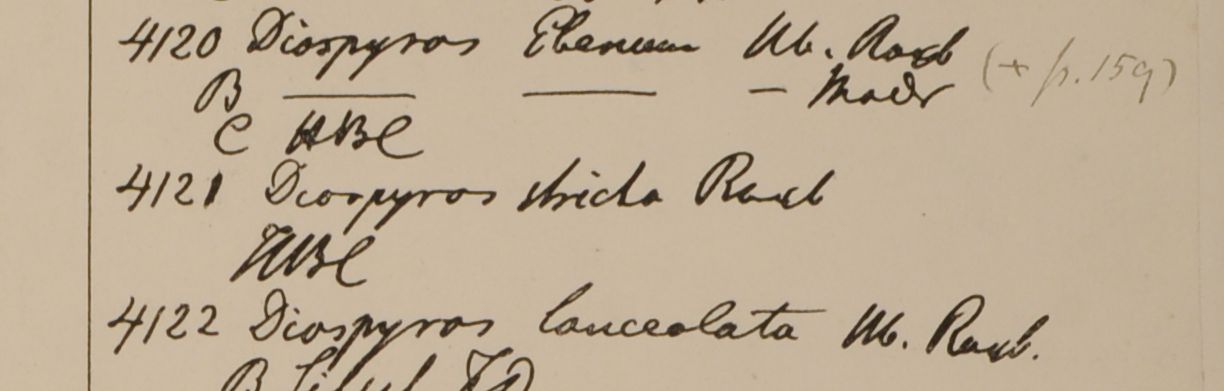 4120 Diospyros Ebenum Hb. Roxb (+ p. 159)
B — — — Madr
C HBC
4121 Diospyros stricta Roxb
HBC
4122 Diospyros lanceolata Hb. Roxb.
B Silhet